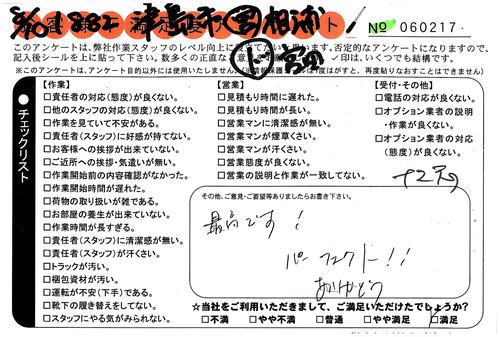 No 060217
このアンケートは、弊社作業スタッフのレベル向上に
否定的なアンケートになりますので、
記入後シールを上に貼って下さい。数多くの正直な
印は、いくつでも結構です。
※このアンケートは、アンケート目的以外には使用いたしません。
はがすと、再度貼りなおすことはできません
チェックリスト
【作業】
□責任者の対応(態度)が良くない。
□他のスタッフの対応(態度)が良くない。
□作業を見ていて不安がある。
□責任者(スタッフ)に好感が持てない。
□お客様への挨拶が出来ていない。
□ご近所への挨拶・気遣いが無い。
□作業開始前の内容確認がなかった。
□作業開始時間が遅れた。
□荷物の取り扱いが雑である。
□お部屋の養生が出来ていない。
□作業時間が長すぎる。
□責任者(スタッフ)に清潔感が無い。
□責任者(スタッフ)が汗さい。
□トラックが汚い。
□梱包資材が汚い。
□運転が不安(下手)である。
□靴下の履き替えをしてない。
□スタッフにやる気がみられない。
【営業】
□見積もり時間に遅れた。
□見積もり時間が長い。
□営業マンに清潔感が無い。
□営業マンが煙草くさい。
□営業マンが汗さい。
□営業態度が良くない。
□営業の説明と作業が一致してない。
【受付・その他】
□電話の対応が良くない。
□オプション業者の説明
・作業が良くない。
□オプション業者の対応
(態度)が良くない。
その他、ご意見・ご要望等ありましたらお書き下さい。
最高です!
パーフェクトー!!
ありがとう
☆当社をご利用いただきまして、ご満足いただけたでしょうか?
□不満 □やや不満 □普通 □やや満足 □満足